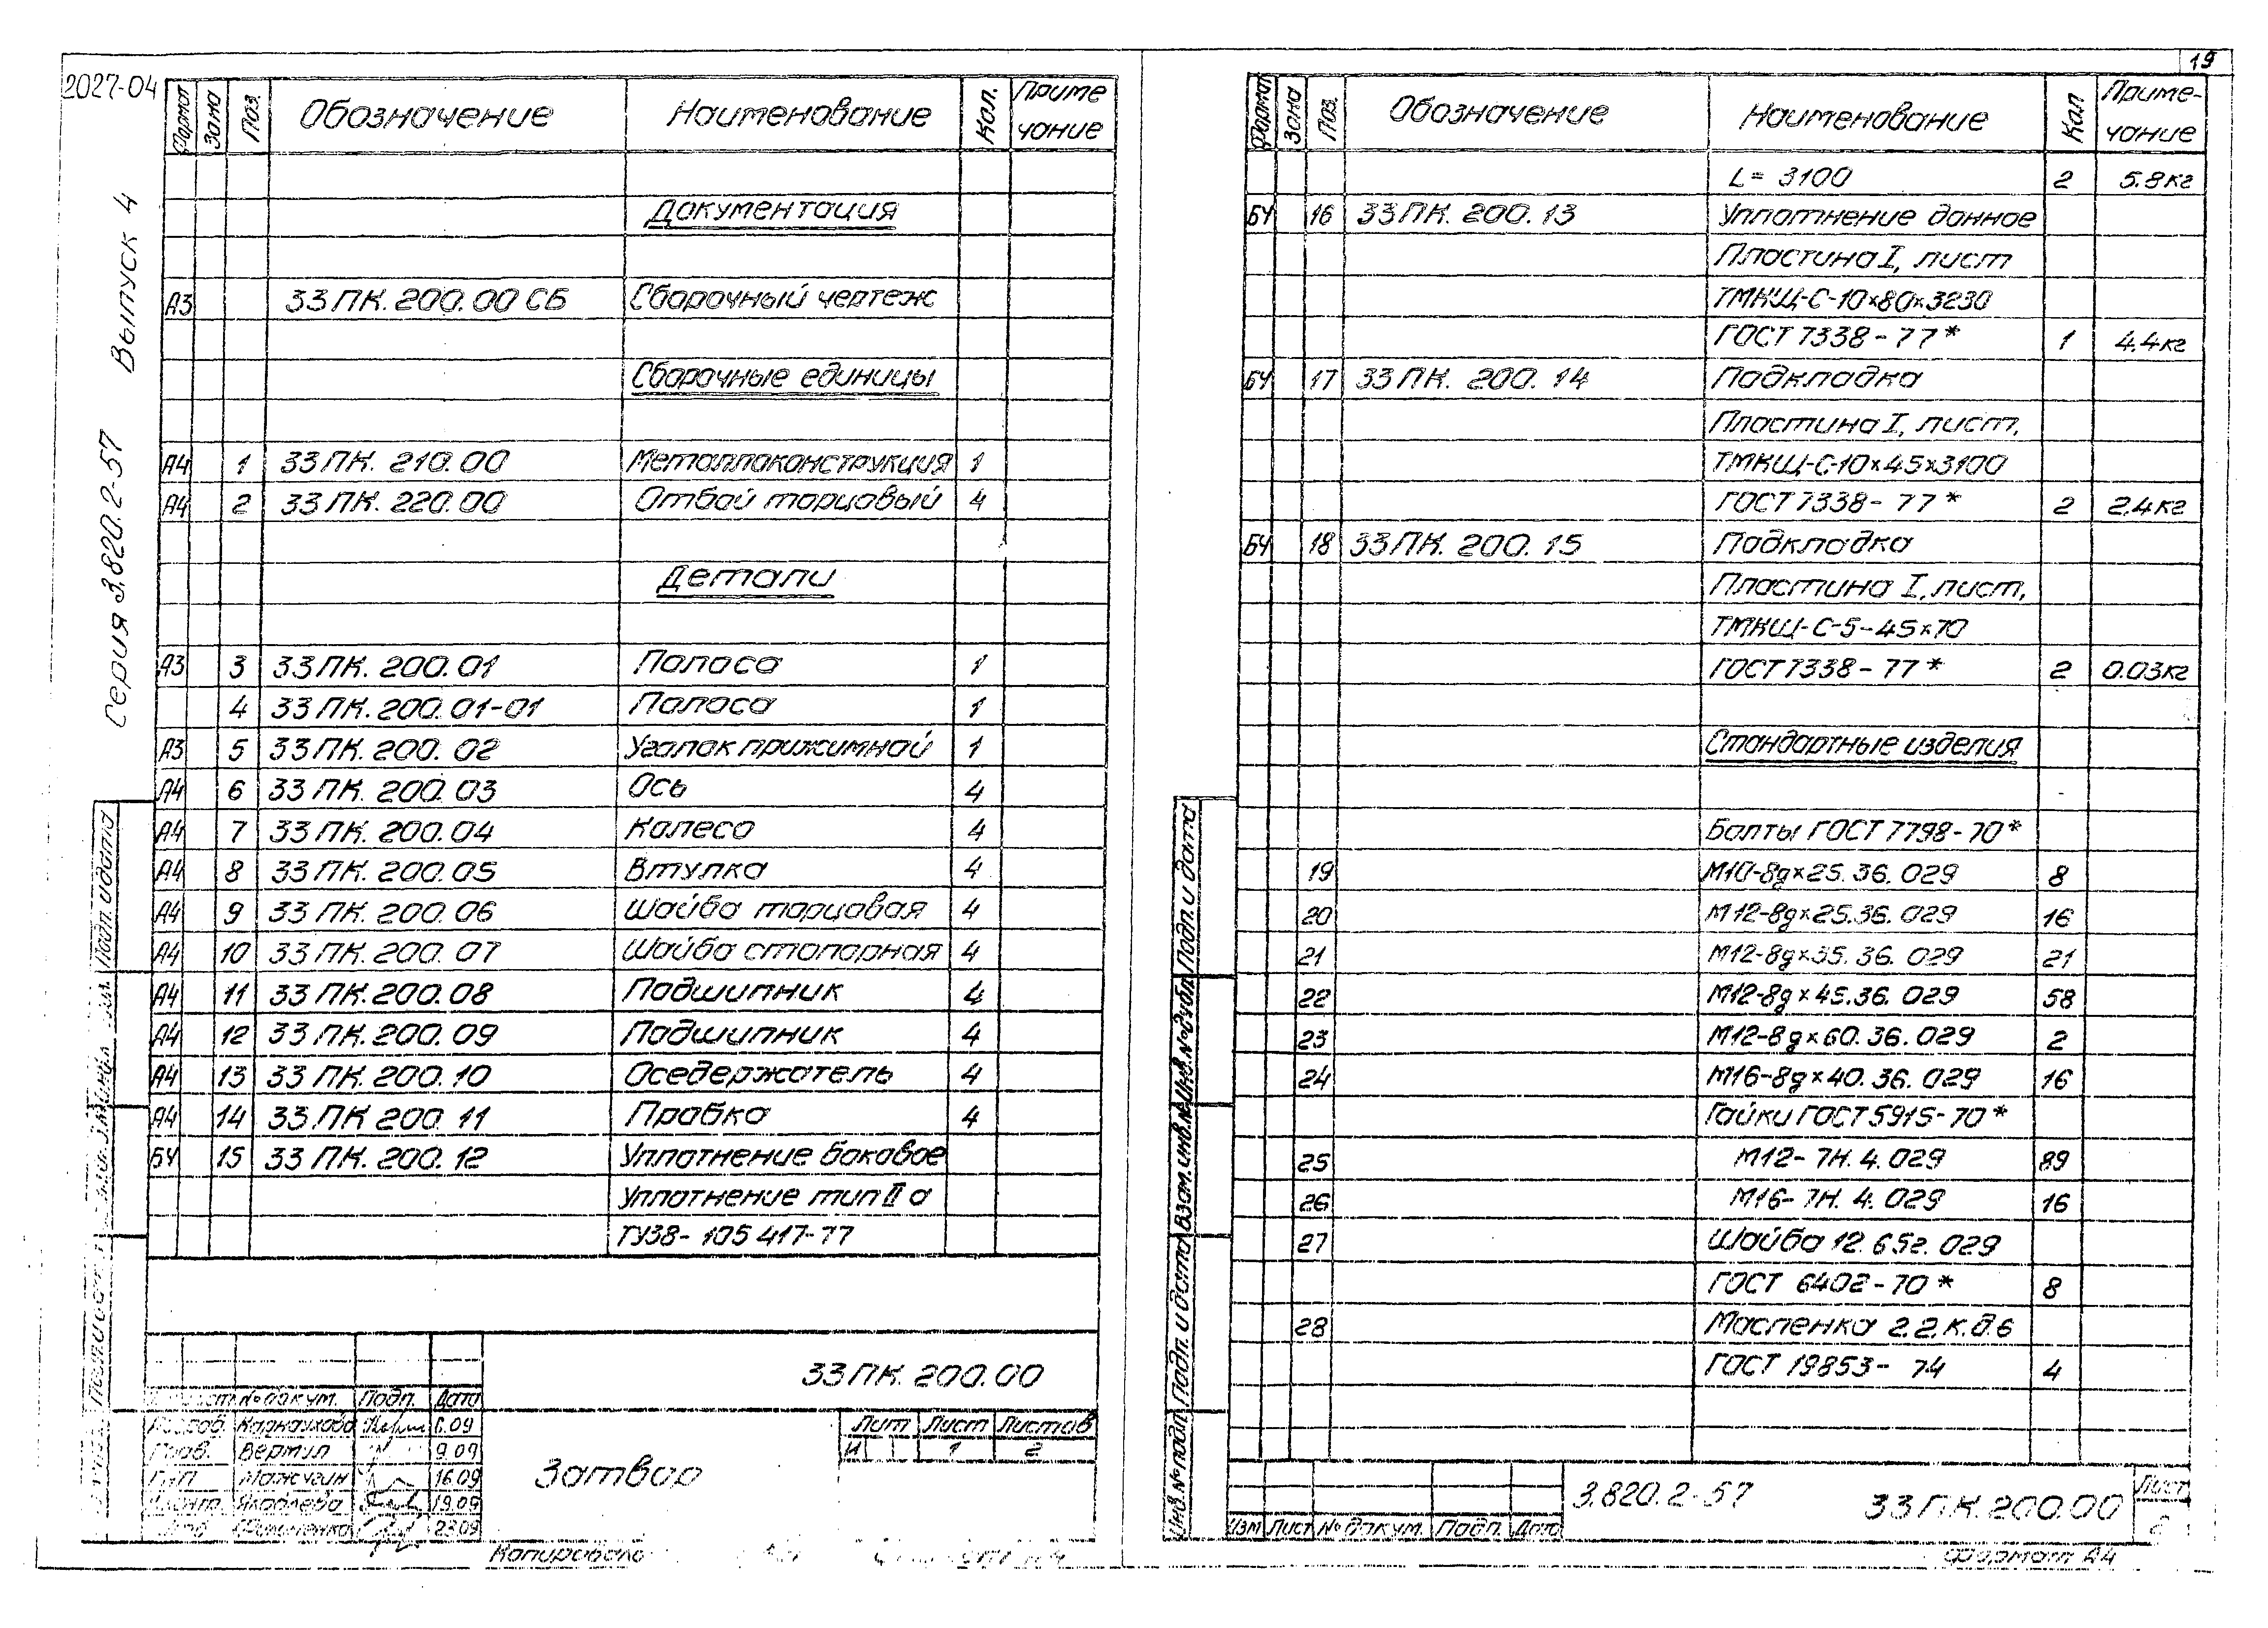 19
2027-04
Серия 3.820.2-57 Выпуск 4
Формат Зона Поз. Обозначение Наименование Кол. Приме чание
Документация
А3 33 ПК. 200. 00 СБ Сборочный чертеж
Сборочные единицы
А4 1 33 ПК. 210. 00 Металлоконструкция 1
А4 2 33 ПК. 220. 00 Отбой торцовый 4
Детали
А3 3 33 ПК. 200. 01 Полоса 1
4 33 ПК. 200. 01-01 Полоса 1
А3 5 33 ПК. 200. 02 Уголок прижимной 1
А4 6 33 ПК. 200. 03 Ось 4
А4 7 33 ПК. 200. 04 Колесо 4
А4 8 33 ПК. 200. 05 Втулка 4
А4 9 33 ПК. 200. 06 Шайба торцовая 4
А4 10 33 ПК. 200. 07 Шайба стопорная 4
А4 11 33 ПК. 200. 08 Подшипник 4
А4 12 33 ПК. 200. 09 Подшипник 4
А4 13 33 ПК. 200. 10 Оседержатель 4
А4 14 33 ПК 200. 11 Пробка 4
БЧ 15 33 ПК. 200. 12 Уплотнение боковое
Уплотнение тип II а
ТУ38- 105 417-77
Подп. и дата
33 ПК. 200. 00
№ докум. Подп. Дата
Карнаухова 6.09
Пров. Вертил 9 09
16.09
Яковлева 19.09
23.09
Затвор
Лит Лист Листов
И 1 2
Копировала
Формат Зона Поз. Обозначение Наименование Кол Приме- чание
L= 3100 2 5.8кг
БЧ 16 33 ПК. 200. 13 Уплотнение донное
Пластина I, лист
ТМКЩ-С-10×80×3230
ГОСТ 7338- 77* 1 4.4кг
БЧ 17 33 ПК. 200. 14 Подкладка
Пластина I, лист,
ТМКЩ-С-10×45×3100
ГОСТ 7338- 77* 2 2.4кг
БЧ 18 33 ПК. 200. 15 Подкладка
Пластина I, лист,
ТМКЩ-С-5-45×70
ГОСТ 7338- 77* 2 0.03кг
Стандартные изделия
Болты ГОСТ 7798-70*
19 М10-8g×25. 36. 029 8
20 М12-8g×25.36. 029 16
21 М12-8g×35. 36. 029 21
22 М12-8g×45.36. 029 58
23 М12-8g×60. 36. 029 2
24 М16-8g×40. 36. 029 16
Гайки ГОСТ 5915-70*
25 М12- 7Н. 4. 029 89
26 М16- 7Н. 4. 029 16
27 Шайба 12. 65г. 029
ГОСТ 6402-70* 8
28 Масленка 2.2.К.д.6
ГОСТ 19853- 74 4
Инв.№ подл. Подп. и дата Взам. инв.№ Инв.№ дубл. Подп. и дата
Изм Лист № докум. Подп. Дата
3.820. 2-57
33 ПК. 200.00
Лист
2
Формат А4